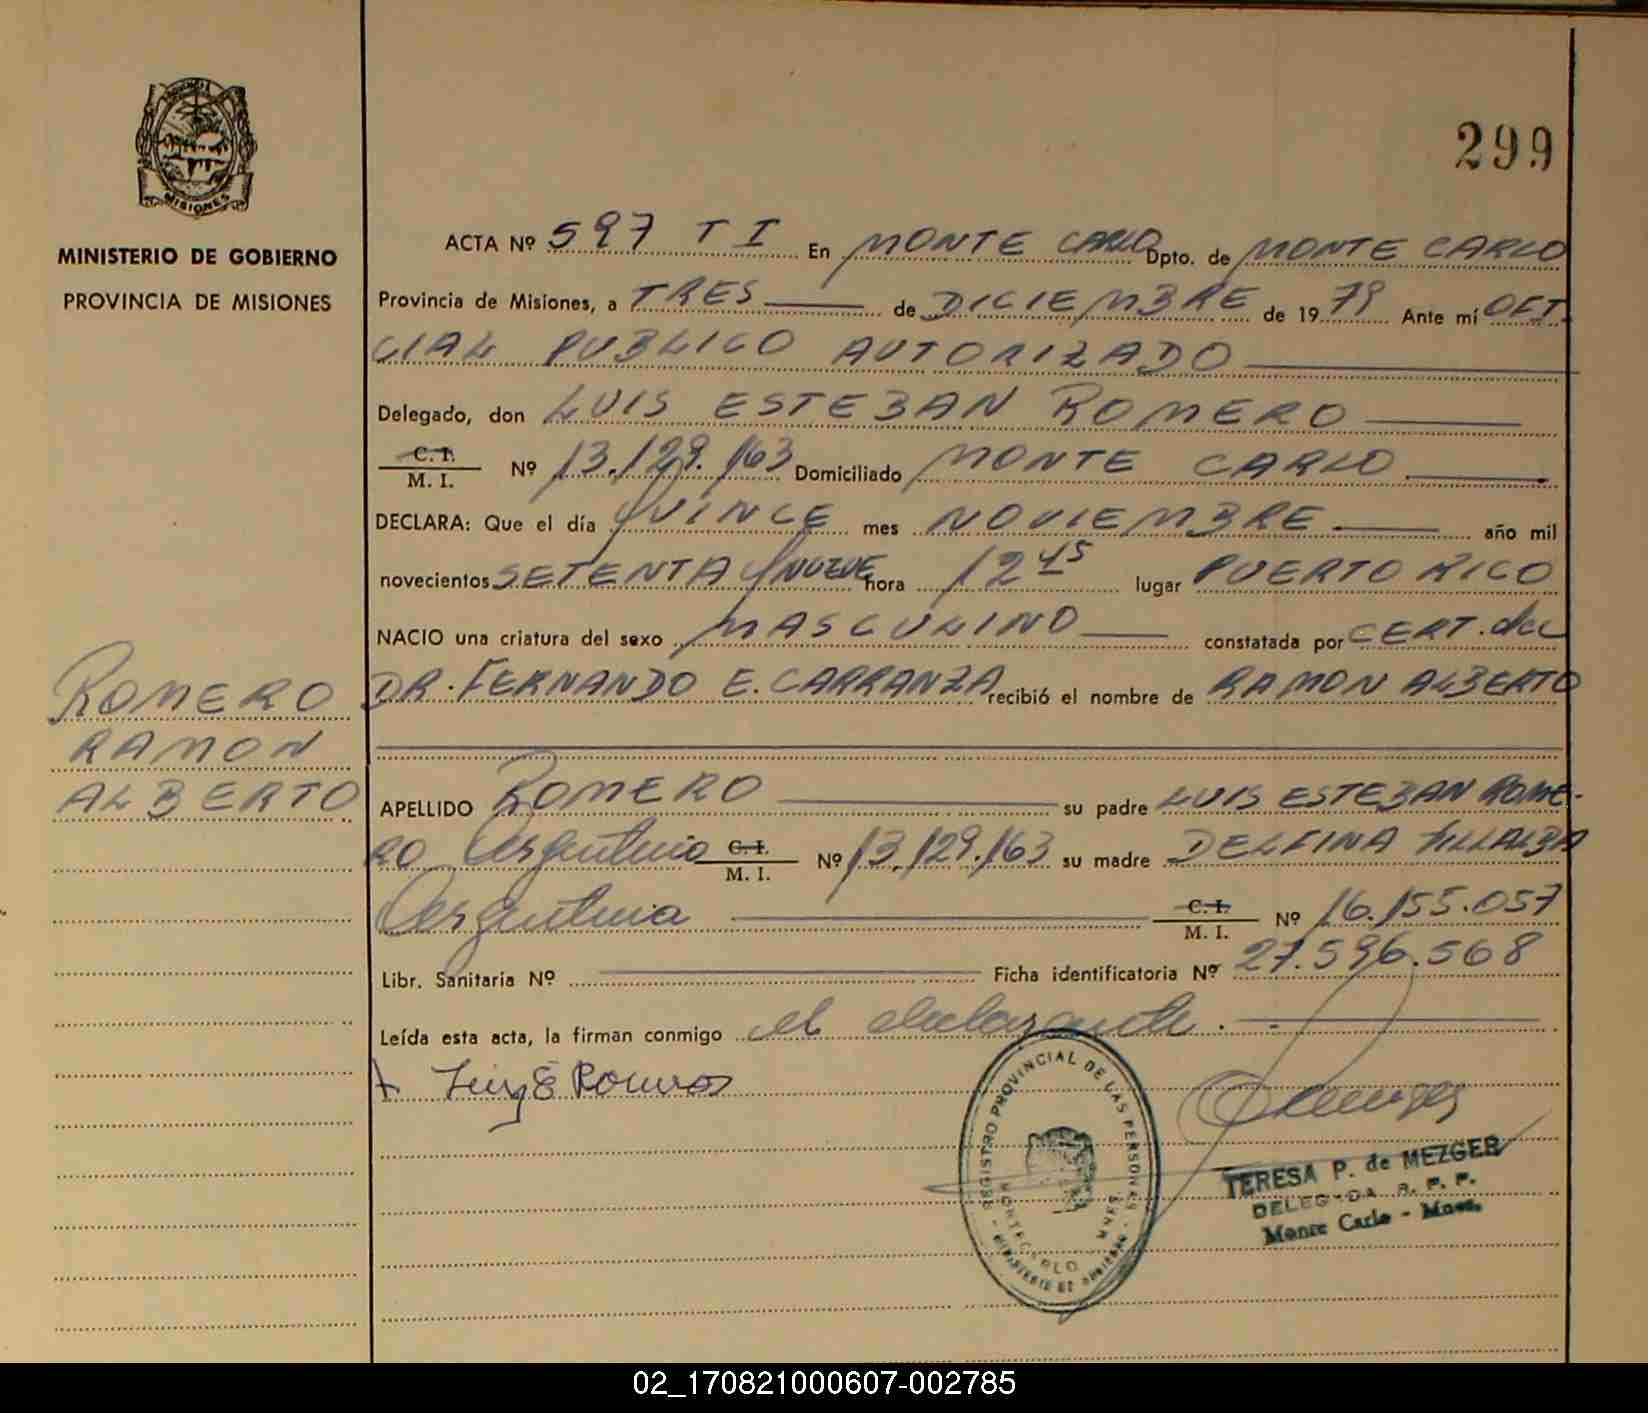 299
PROVINCIA DE
MISIONES
MINISTERIO DE GOBIERNO
PROVINCIA DE MISIONES
ROMERO
RAMON
ALBERTO
ACTA Nº 597 T I En MONTE CARLO Dpto. de MONTE CARLO
Provincia de Misiones, a TRES de DICIEMBRE de 1979 Ante mí OFI.
CIAL PUBLICO AUTORIZADO
Delegado, don LUIS ESTEBAN ROMERO
C. I.
M. I. Nº 13.129.163 Domiciliado MONTE CARLO
DECLARA: Que el día QUINCE mes NOVIEMBRE año mil
novecientos SETENTA Y NUEVE hora 12 45 lugar PUERTO RICO
NACIO una criatura del sexo MASCULINO constatada por CERT. del
DR. FERNANDO E. CARRANZA recibió el nombre de RAMON ALBERTO
APELLIDO ROMERO su padre LUIS ESTEBAN ROME-
RO Argentino C. I. M. I. Nº 13.129.163 su madre DELFINA VILLALBA
Argentina C. I. M. I. Nº 16.155.057
Libr. Sanitaria Nº Ficha identificatoria Nº 27.596.568
Leída esta acta, la firman conmigo el declarante.
Luis E Romero
REGISTRO PROVINCIAL DE LAS PERSONAS
MONTECARLO MNES
MINISTERIO DE GOBIERNO
TERESA P. de MEZGER
DELEGADA R. P. P.
Monte Carlo - Mnes.
02_170821000607-002785